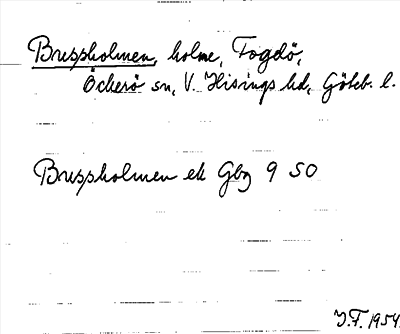 Bruspholmen, holme, Fogdö,
Öckerö sn, V. Hisings hd, Göteb. l.
Bruspholmen ek Gbg 9 SO
J.F. 1954.